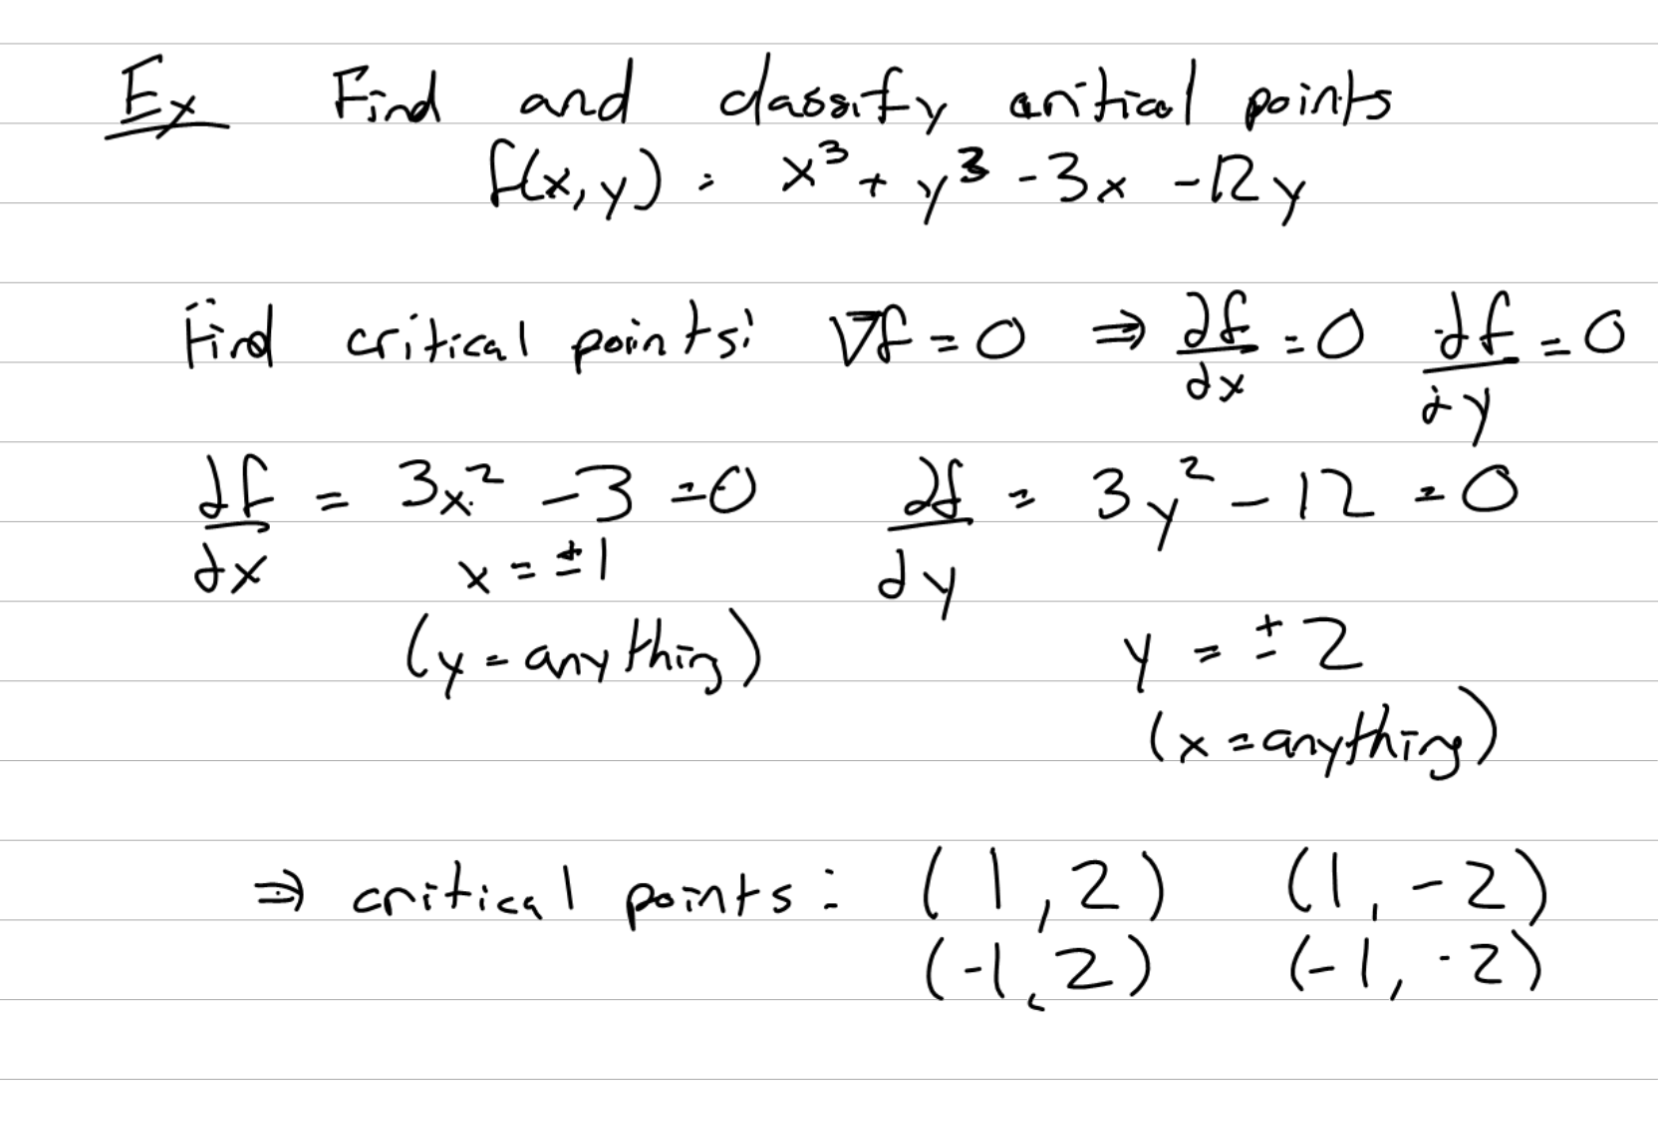 Ex Find and classify critical points
f(x,y) = x³ + y³ - 3x - 12y
Find critical points: ∇f = 0 ⇒ ∂f/∂x = 0 ∂f/∂y = 0
∂f/∂x = 3x² - 3 = 0 ∂f/∂y = 3y² - 12 = 0
x = ±1
(y = anything) y = ±2
(x = anything)
⇒ critical points: (1, 2) (1, -2)
(-1, 2) (-1, -2)